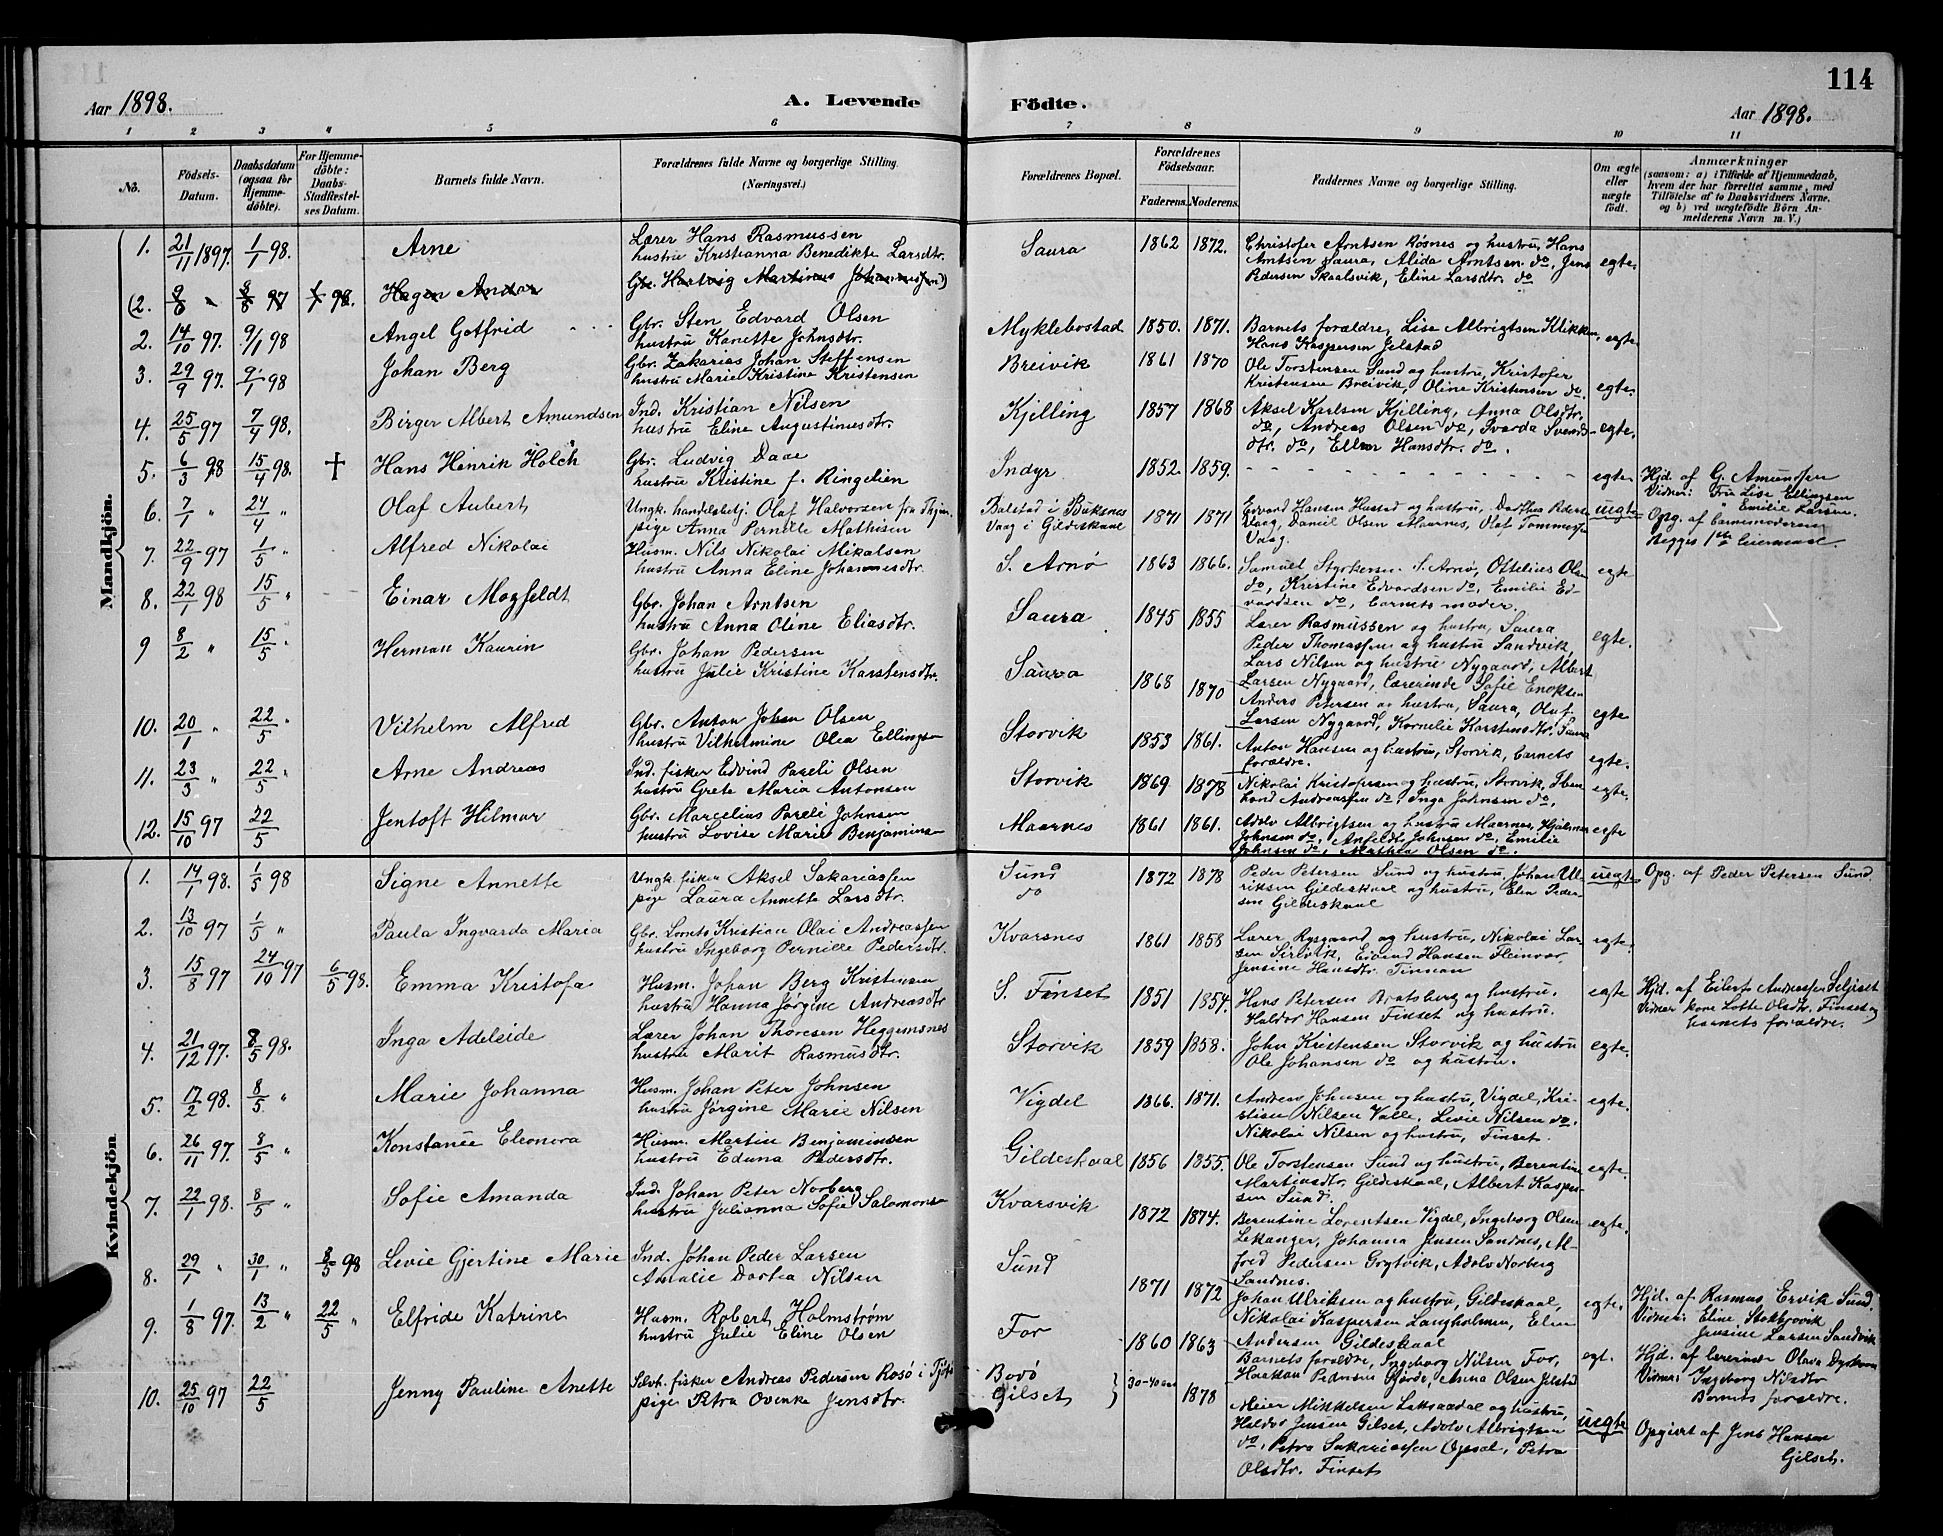 114
Aar 1898.
A. Levende Födte.
Aar 1898.
1 2 3 4 5 6 7 8 9 10 11
No.
Födsels-Datum.
Daabsdatum (ogsaa for Hjemme-döbte).
For Hjemme-döbte: Daabs-Stadfæstel-ses Datum.
Barnets fulde Navn.
Forældrenes fulde Navne og borgerlige Stilling. (Næringsvei.)
Forældrenes Bopæl.
Forældrenes Födselsaar.
Faderens. Moderens.
Faddernes Navne og borgerlige Stilling.
Om ægte eller uægte födt.
Anmærkninger
(saasom: a) i Tilfælde af Hjemmedaab,
hvem der har forrettet samme, med
Tilföielse af to Daabsvidners Navne,
og b) ved uægtefödte Börn An-
melderens Navn m. V.)
Mandkjön.
1. 21/11 1897. 1/1 98. Arne
Lærer Hans Rasmussen
hustru Kristianna Benedikte Larsdtr.
Saura 1862 1872.
Christofer Arntsen Røsnes og hustru, Hans
Arntsen Saura, Alida Arntsen do, Jens
Pedersen Skaalsvik, Eline Larsdtr. do
egte.
(2. 97 98. Hagen Andor
Gbr. Hartvig Martinus Johannessen)
2. 14/10 97. 9/1 98 Angel Gotfrid
Gbr. Sten Edvard Olsen
hustru Kanette Johnsdtr.
Myklebostad 1850. 1871.
Barnets forældre, Lise Albrigtsen Klikken,
Hans Kaspersen Jelstad
egte.
3. 29/9 97. 9/1 98 Johan Berg
Gbr. Zakarias Johan Steffensen
hustru Marie Kristine Kristensen
Breivik 1861 1870
Ole Torstensen Sund og hustru, Kristofer
Kristensen Breivik, Oline Kristensen do.
egte.
4. 25/5 97 7/4 98. Birger Albert Amundsen
Ind. Kristian Nilsen
hustru Eline Augustinusdtr.
Kjelling 1857 1868
Aksel Karlsen Kjelling, Anna Olsdtr.
do, Andreas Olsen do, Svarda Svends-
dtr. do, Ellen Hansdtr. do.
egte.
5. 6/3 98 15/4 98. † Hans Henrik Holch
Gbr. Ludvig Daae
hustru Kristine f. Ringelien
Indyr 1852. 1859.
egte.
Hjd. af G. Amundsen
Vidner: Fru Lise Ellingsen
" Emilie Larsen.
6. 7/1 " 24/4 " Olaf Aubert
Ungk. handelsbetj. Olaf Halvorsen fra
pige Anna Pernille Mathisen
Balstad i Buksnes
Vaag i Gildeskaal
1871 1871
Edvard Hansen Hustad og hustru, Dorthea Peders
Vaag, Daniel Olsen Maarnes, Olaf Tommesen
Vaag.
uegte
Opg. af barnemoderen
Begges 1ste leiermaal.
7. 22/9 97 1/5 " Alfred Nikolai
Husm. Nils Nikolai Mikalsen
hustru Anna Eline Johannesdtr.
S. Arnø 1863 1866.
Samuel Styrkersen S. Arnø, Ottelius Olsen
do, Kristine Edvardsen do, Emilie Ed-
vardsen do, barnets moder.
egte
8. 22/1 98 15/5 " Einar Mogfeldt
Gbr. Johan Arntsen
hustru Anna Oline Eliasdtr.
Saura 1845 1855
Lærer Rasmussen og hustru, Saura
Peder Thomassen og hustru Sandvik,
egte.
9 8/2 " 15/5 " Herman Kaurin
Gbr. Johan Pedersen
hustru Julie Kristine Karstensdtr.
Saura 1868 1870
Lars Nilsen og hustru Nygaard, Albert
Larsen Nygaard, Lærerinde Sofie Enoksen
Anders Petersen og hustru, Saura, Oluf
Larsen Nygaard, Kornelie Karstensdtr. Saura
egte
10. 20/1 " 22/5 " Vilhelm Alfred
Gbr. Anton Johan Olsen
hustru Vilhelmine Olea Ellingsen
Storvik 1853 1861.
Anton Hansen og hustru, Storvik, barnets
forældre.
egte.
11. 23/3 " 22/5 " Arne Andreas
Ind. fisker Edvind Pareli Olsen
hustru Grete Maria Antonsen
Storvik 1869 1878
Nikolai Kristofersen og hustru, Storvik, Iben
Andreassen do, Inga Johnsen do,
egte.
12. 15/10 97 22/5 Jentoft Hilmar
Gbr. Marcelius Pareli Johnsen
hustru Lovise Marie Benjaminsen
Maarnes 1861 1861.
Adolv Albrigtsen og hustru Maarnes, Hjalmar
Johnsen do, Anfeldt Johnsen do, Emilie
Johnsen do, Mathea Olsen do.
egte
Kvindekjön.
1. 14/1 98. 1/5 98 Signe Annette
Ungk. fisker Aksel Sakariassen
pige Laura Annette Larsdtr.
Sund
do
1872 1878
Peder Petersen Sund og hustru, Johan Ul-
riksen Gildeskaal og hustru, Elen Peder-
sen Gildeskaal
uegte
Opg. af Peder Petersen Sund.
2. 13/10 97 1/5 " Paula Ingvarda Maria
Gbr. Lorents Kristian Olai Andreassen
hustru Ingeborg Pernille Pedersdtr.
Kvarsnes 1861 1858
Lærer Rysgaard og hustru, Nikolai Lar-
sen Sørlvik, Eivind Hansen Fleinvær,
Jensine Hansdtr. Finnan
egte.
3. 15/8 97 24/10 97 6/5 98. Emma Kristofa
Husm. Johan Berg Kristensen
hustru Hanna Jørgine Andreasdtr
S. Finset 1851 1854.
Hans Petersen Bratsberg og hustru.
Haldor Hansen Finset og hustru.
egte
Hjd. af Eilert Anderssen Seljeset
Vidner kone Lotte Olsdtr. Finset og
barnets forældre.
4. 21/12 97. 8/5 98. Inga Adeleide
Lærer Johan Thoresen Heggemsnes
hustru Marit Rasmusdtr.
Storvik 1859 1858.
John Kristensen Storvik og hustru
Ole Johansen do og hustru.
egte.
5. 17/2 98. 8/5 " Marie Johanna
Husm. Johan Peter Johnsen
hustru Jørgine Marie Nilsen
Vigdel 1866. 1871.
Andreas Johnsen og hustru, Vigdel, Kri-
stian Nilsen Valle, Levie Nilsen do.
Nikolai Nilsen og hustru, Finset.
egte.
6. 26/11 97. 8/5 " Konstanse Eleonora
Husm. Martin Benjaminsen
hustru Eduna Pedersdtr.
Gildeskaal 1856 1855.
Ole Torstensen Sund og hustru, Berentine
Martinsdtr. Gildeskaal, Albert Kasper-
sen Sund.
egte.
7. 22/1 98. 8/5 " Sofie Amanda
Ind. Johan Peter Norberg
hustru Julianna Sofie Salomons
Kvarsvik 1872 1874.
Berentine Lorentsen Vigdel, Ingeborg Olsen
Lekanger, Johanna Jensen Sandnes, Al-
fred Pedersen Grytvik, Adolv Norberg
Sandnes.
egte.
8. 29/1 " 30/1 " 8/5 98 Levie Gjertine Marie
Ind. Johan Peder Larsen
Amalie Dortea Nilsen
Sund 1871 1872
Johan Ulriksen og hustru, Gildeskaal,
Nikolai Kaspersen Langholmen, Elen
Andersen Gildeskaal
egte.
Hjd. af Rasmus Ervik Sund.
Vidner: Eline Stokbrovik
Jensine Larsen Sandvik
9. 1/8 97. 13/2 " 22/5 " Elfride Katrine
Husm. Robert Holmstrøm
hustru Julie Eline Olsen
For 1860 1863
Barnets forældre, Ingeborg Nilsen For,
Haakon Pedersen Gjørde, Anna Olsen Jelstad
egt.
Hjd. af lærerinde Olava Dyrhaun
Vidner: Ingeborg Nilsdtr
Barnets forældre.
10. 25/10 97 22/5 Jenny Pauline Anette
fisker Andreas Pedersen Rosø i
pige Petra Ovenke Jensdtr.
Bodø
Gilset
30-40 aar 1878
Meier Mikkelsen Laksaadal og hustru,
Haldor Jensen Gilset, Adolv Albrigtsen
do, Petra Sakariassen Opsal, Petra
Olsdtr. Finset
uegte
Opgivet af Jens Hansen
Gilset.